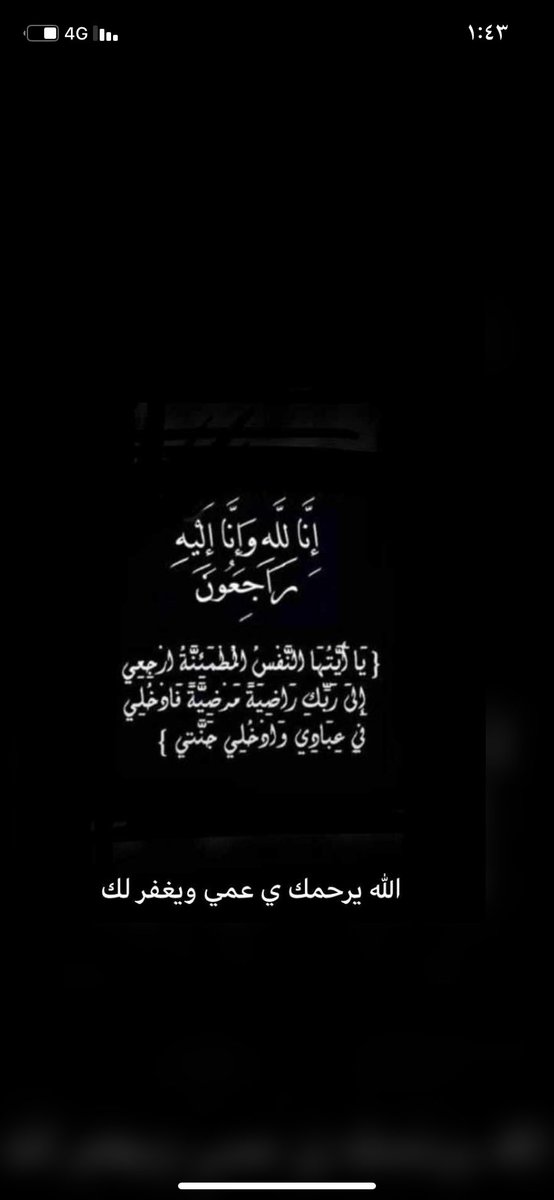 4G ١:٤٣
إِنَّا لِلَّهِ وَإِنَّا إِلَيْهِ
رَاجِعُونَ
{ يَا أَيَّتُهَا النَّفْسُ الْمُطْمَئِنَّةُ ارْجِعِي
إِلَىٰ رَبِّكِ رَاضِيَةً مَرْضِيَّةً فَادْخُلِي
فِي عِبَادِي وَادْخُلِي جَنَّتِي }
الله يرحمك ي عمي ويغفر لك